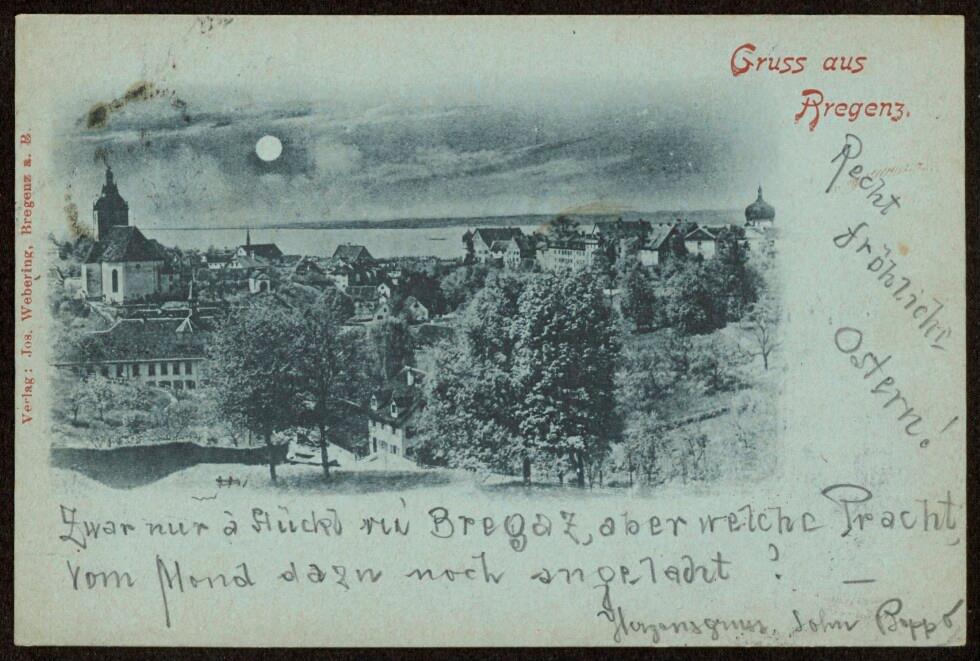 Gruss aus
Bregenz.
Verlag: Jos. Webering, Bregenz a. B.
Recht
fröhliche
Ostern!
Zwar nur à Stückl vu Bregaz, aber welche Pracht,
vom Mond dazu noch angelacht!
Herzensgruss, Sohn Beppo